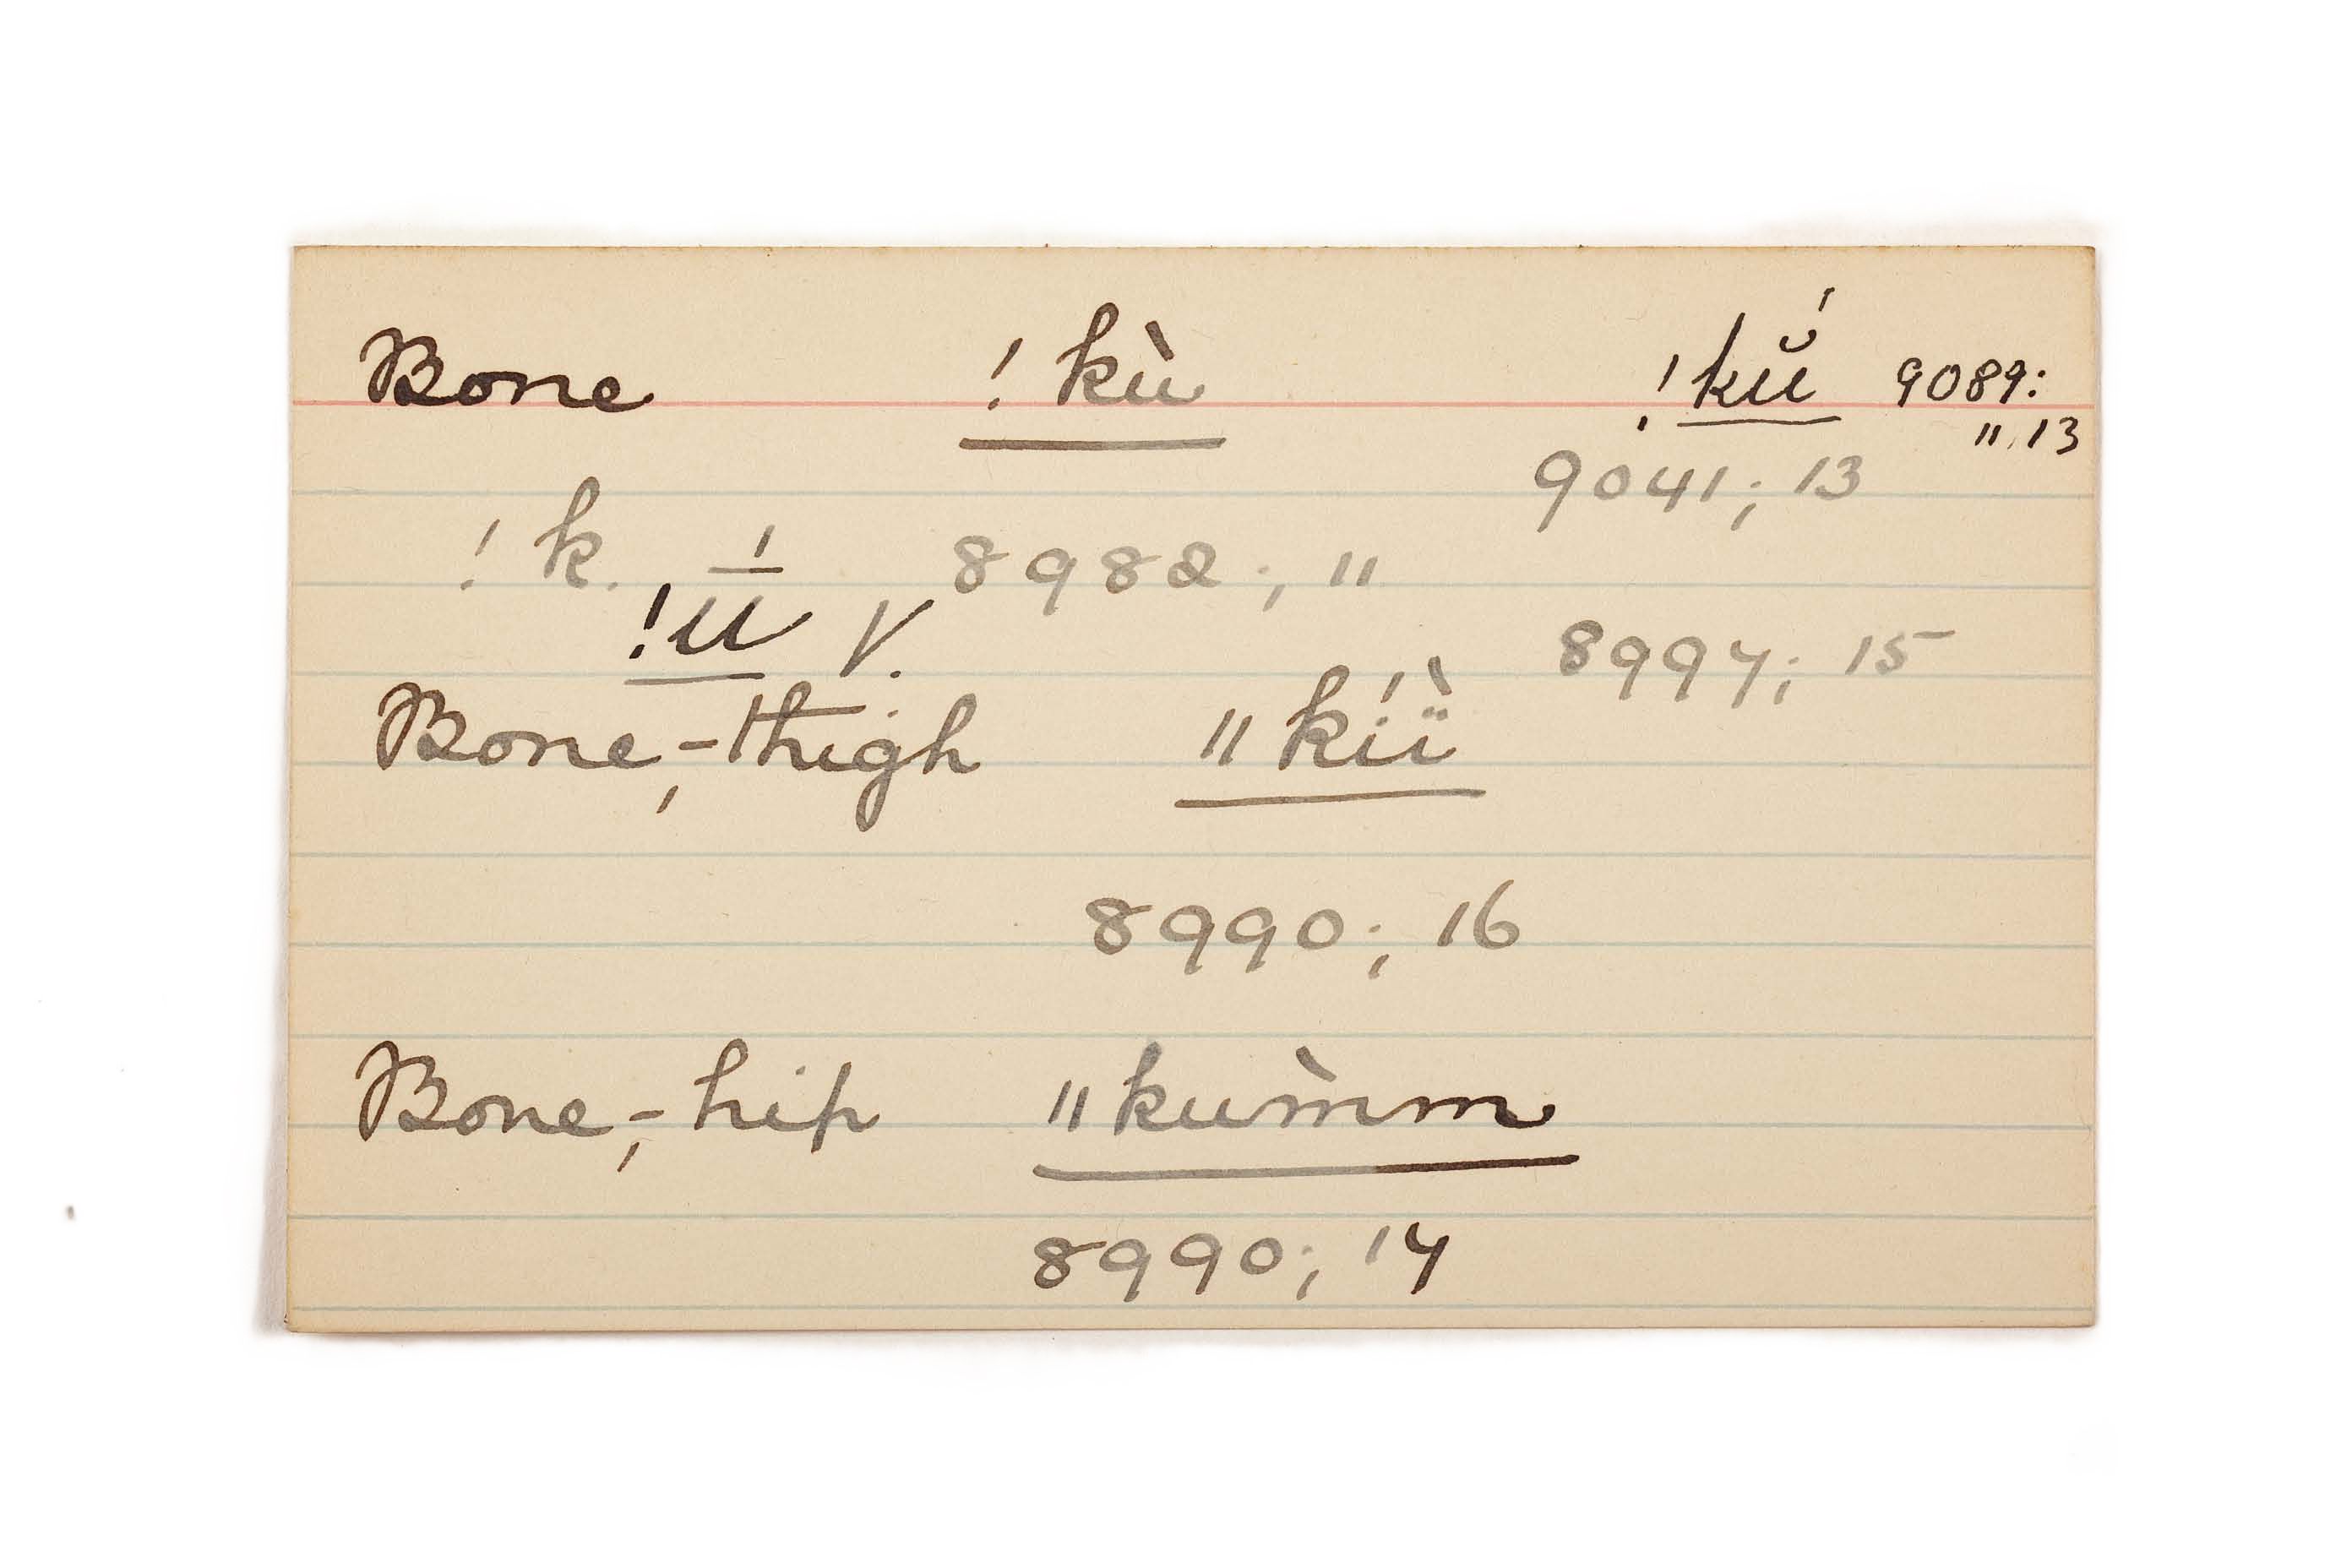 Bone !kù !kŭ́ 9089:
" 13
9041; 13
!k. 8982; "
!u V. 8997; 15
Bone,-thigh "kíï̀
8990; 16
Bone,-hip "kum̀m
8990; 17